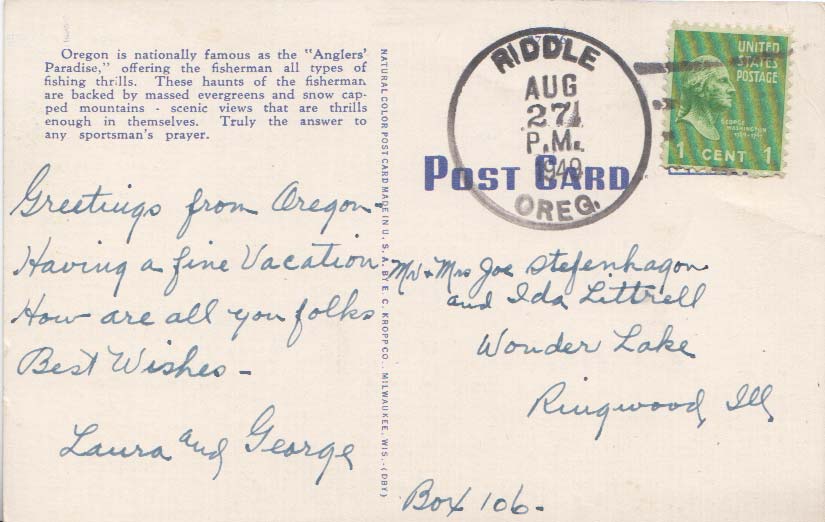 Oregon is nationally famous as the "Anglers'
Paradise," offering the fisherman all types of
fishing thrills. These haunts of the fisherman
are backed by massed evergreens and snow cap-
ped mountains - scenic views that are thrills
enough in themselves. Truly the answer to
any sportsman's prayer.
Greetings from Oregon-
Having a fine Vacation
How are all you folks
Best Wishes -
Laura and George
NATURAL COLOR POST CARD MADE IN U. S. A. BY E. C. KROPP CO., MILWAUKEE, WIS. - (DBY)
RIDDLE
AUG
27
P.M.
OREG.
UNITED
STATES
POSTAGE
GEORGE
WASHINGTON
1 CENT 1
POST CARD
Mr + Mrs Joe Stefenhagon
and Ida Littrell
Wonder Lake
Ringwood, Ill
Box 106-